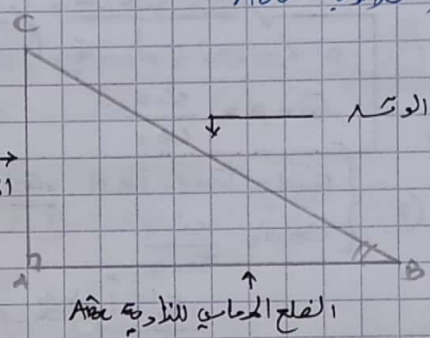 C
الوتر
A
B
الضلع المحاذي للزاوية ABC